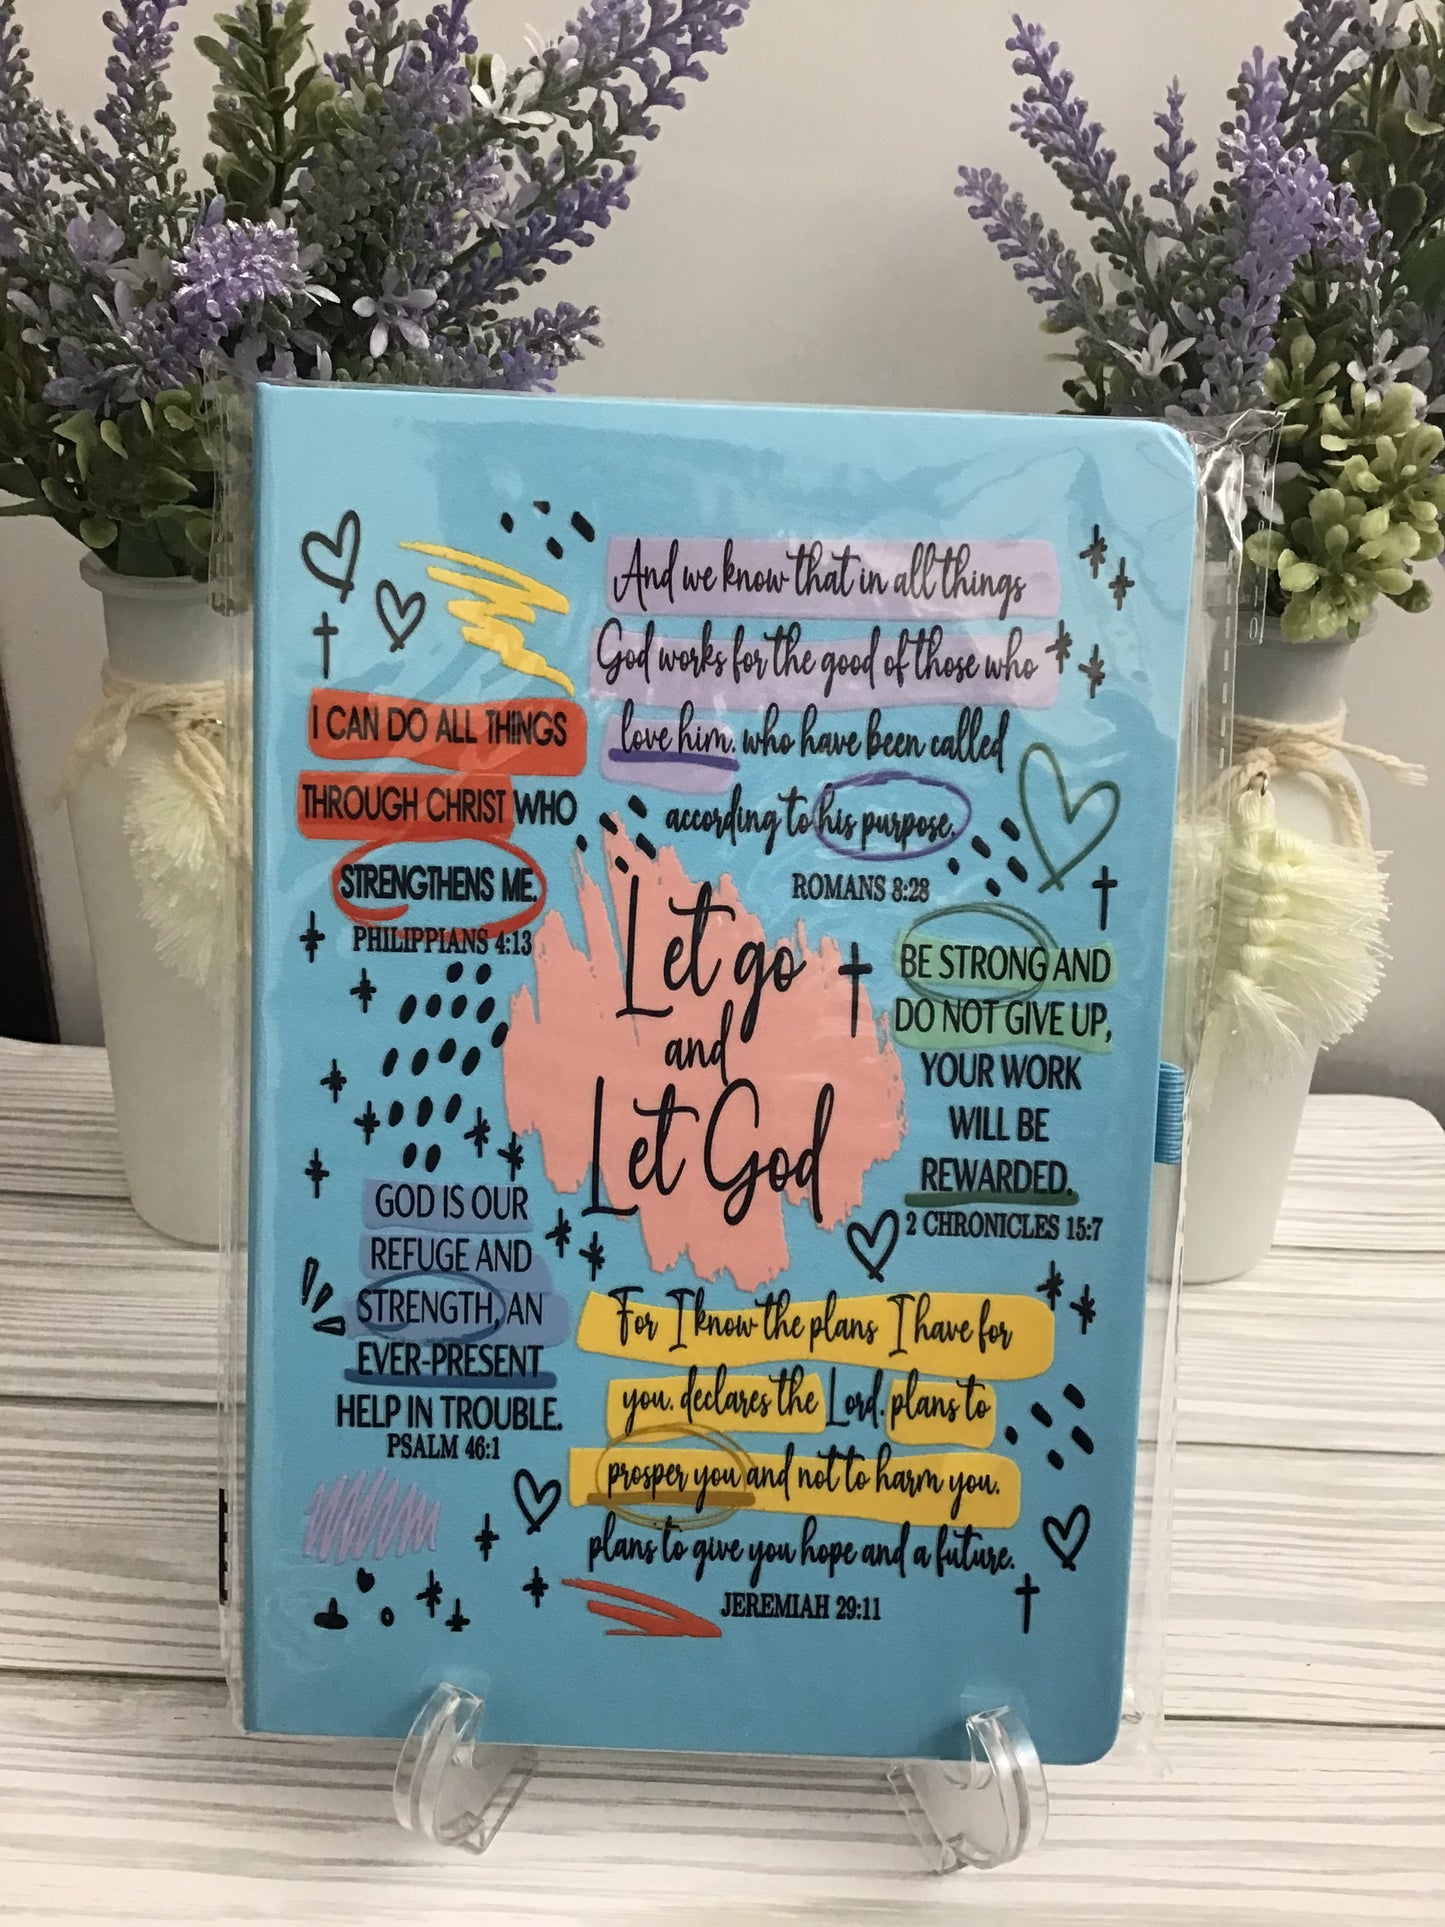 And we know that in all things
God works for the good of those who
love him. who have been called
according to his purpose.
ROMANS 8:28
I CAN DO ALL THINGS
THROUGH CHRIST WHO
STRENGTHENS ME.
PHILIPPIANS 4:13
Let go
and
Let God
BE STRONG AND
DO NOT GIVE UP,
YOUR WORK
WILL BE
REWARDED.
2 CHRONICLES 15:7
GOD IS OUR
REFUGE AND
STRENGTH, AN
EVER-PRESENT
HELP IN TROUBLE.
PSALM 46:1
For I know the plans I have for
you. declares the Lord. plans to
prosper you and not to harm you.
plans to give you hope and a future.
JEREMIAH 29:11